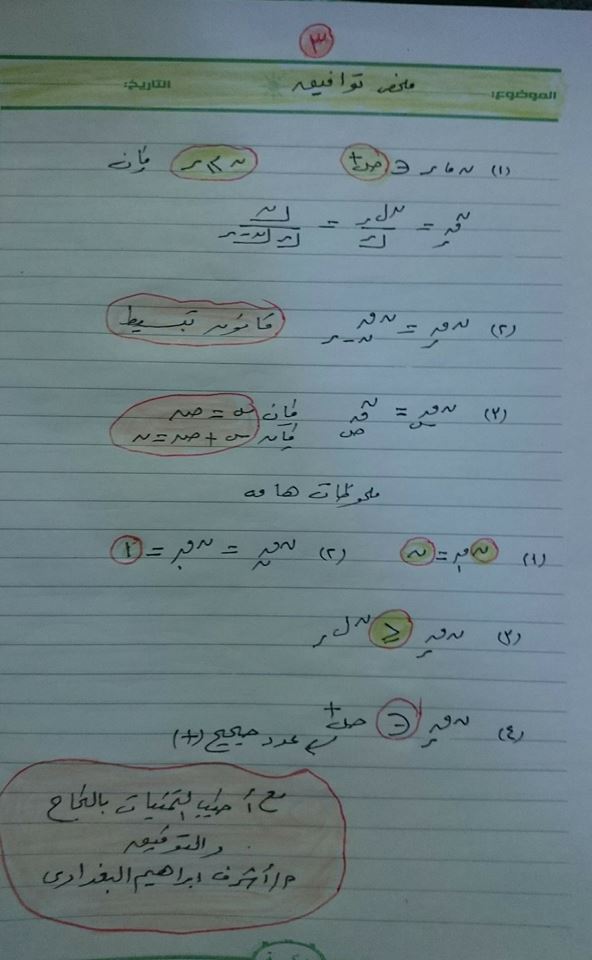 ٣
الموضوع: ملخص توافيق التاريخ:
(١) ن ، ر ∈ ص+ ن ⩾ ر فإن
ⁿقر = ⁿلر / ⌊ر = ⌊ن / ⌊ر ⌊ن-ر
(٢) ⁿقر = ⁿقن-ر قانون تبسيط
(٣) ⁿقس = ⁿقص فإن س = ص
فإن س + ص = ن
ملحوظات هامه
(١) ⁿق١ = ن (٢) ⁿقن = ⁿق٠ = ١
(٣) ⁿقر ≤ ⁿلر
(٤) ⁿقر ∈ ص+
عدد صحيح (+)
مع أطيب التمنيات بالنجاح
والتوفيق
م/أشرف ابراهيم البغدادى